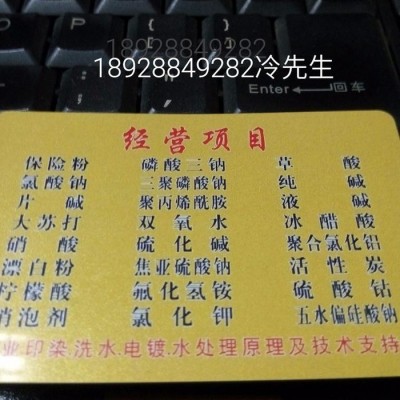 18928849282
18928849282冷先生
Enter 回车
经营项目
保险粉 磷酸三钠 草酸
氯酸钠 三聚磷酸钠 纯碱
片碱 聚丙烯酰胺 液碱
大苏打 双氧水 冰醋酸
硝酸 硫化碱 聚合氯化铝
漂白粉 焦亚硫酸钠 活性炭
柠檬酸 氟化氢铵 硫酸钴
消泡剂 氯化钾 五水偏硅酸钠
业印染.洗水.电镀.水处理原理及技术支持